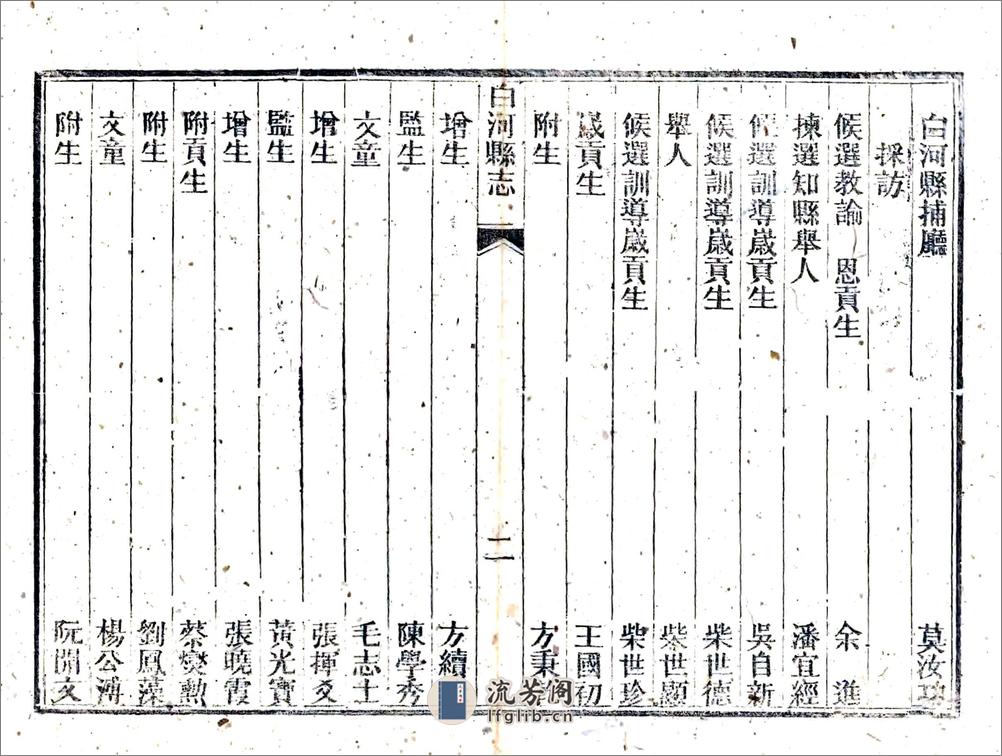 白河縣捕廳 莫汝功
採訪
候選教諭 恩貢生 余進
揀選知縣舉人 潘宜經
候選訓導歲貢生 吳自新
候選訓導歲貢生 柴世德
舉人 柴世顯
候選訓導歲貢生 柴世珍
歲貢生 王國初
附生 方秉
白河縣志 二
增生 方續
監生 陳學秀
文童 毛志士
增生 張揮爻
監生 黃光寶
增生 張曉霞
附貢生 蔡燮勳
附生 劉鳳藻
文童 楊公溥
附生 阮開文
流芳阁
lfglib.cn